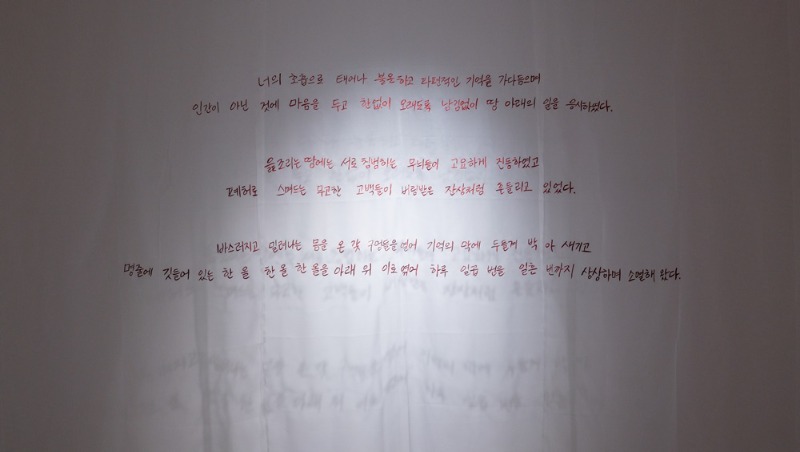 너의 호흡으로 태어나 불온하고 라텐적인 기억을 가다듬으며
인간이 아닌 것에 마음을 두고 한없이 오래도록 남김없이 땅 아래의 일을 응시하였다.
읊조리는 땅에는 서로 침범하는 무늬들이 고요하게 진동하였고
폐허로 스며드는 고백들이 버림받은 잔상처럼 흔들리고 있었다.
바스러지고 덜어내는 몸을 온갖 구멍들을 엮어 기억의 막에 두텁게 박아 새기고
명줄에 깃들어 있는 한 올 한 올 한 올을 아래 위 이로 엮어 하루 일곱 번을 일흔 번까지 상상하며 소멸해 왔다.